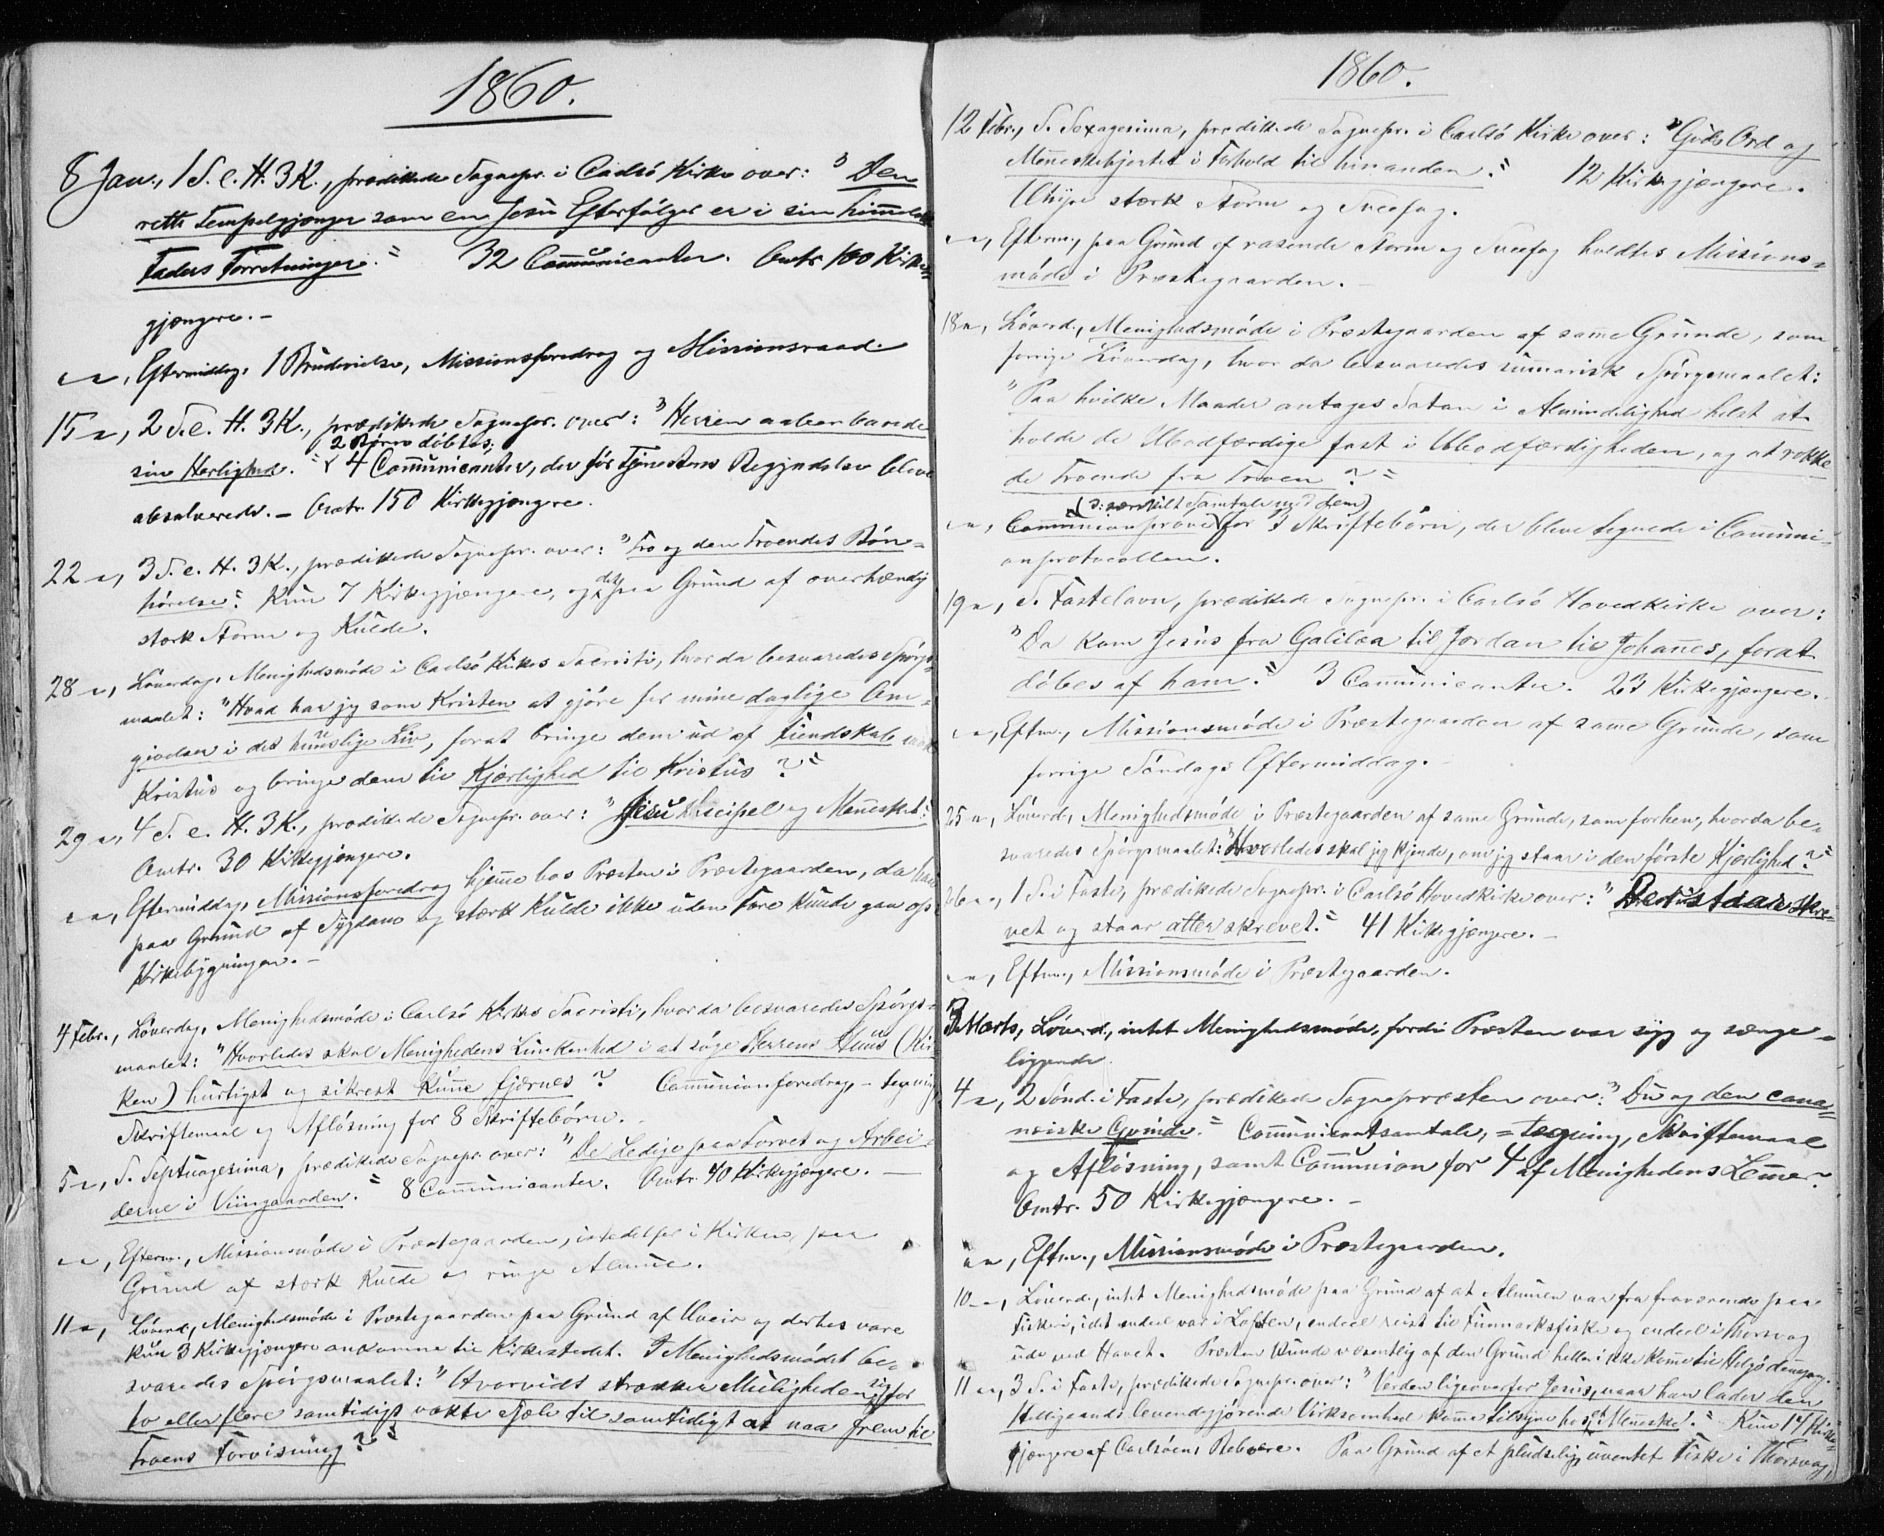 1860.
8 Jan., 1 S. e. H. 3 K., prædikede Sognepr. i Carlsö Kirke over: "Den
rette Tempelgjænger som en Jesu Efterfölger er i sin himmelske
Faders Forretninger." 32 Communicanter. Omtr. 100 Kirke-
gjængere. –
Eftermiddag, 1 Brudevielse, Missionsforedrag og Missionsraad.
15 –, 2 S. e. H. 3 K., prædikede Sognepr. over: "Herren aabenbarede
2 Börn döbtes;
sin Herlighed." 4 Communicanter, der för Tjenestens Begyndelse bleve
absolverede. – Omtr. 150 Kirkegjængere.
22 –, 3 S. e. H. 3 K., prædikede Sognepr. over: "Tro og den Troendes Bön-
hörelse." Kun 7 Kirkegjængere, og det paa Grund af overhændig
stærk Storm og Kulde.
28 –, Löverdag, Menighedsmöde i Carlsö Kirkes Sacristi, hvor da besvaredes Spörgs-
maalet: "Hvad har jeg som Kristen at gjöre for mine daglige Om-
givelser i det huuslige Liv, forat bringe dem ud af Fiendskab mod
Kristus og bringe dem til Kjærlighed til Kristus?"
29 –, 4 S. e. H. 3 K., prædikede Sognepr. over: "Jesu Discipel og Mennesket."
Omtr. 30 Kirkegjængere.
Eftermiddag, Missionsforedrag hjemme hos Præsten i Præstegaarden, da han
paa Grund af Sygdom og stærk Kulde ikke uden Fare kunde gaa op
Kirkebygningen. –
4 Febr., Löverdag, Menighedsmöde i Carlsö Kirkes Sacristi, hvor da besvaredes Spörgs-
maalet: "Hvorledes skal Menighedens Lunkenhed i at söge Herrens Huus (Kir-
ken) hurtigst og sikrest kunne fjærnes? Communionforedrag, – tegning,
Skriftemaal og Aflösning for 8 Skriftebörn. –
5 –, S. Septuagesima, prædikede Sognepr. over: "De Ledige paa Torvet og Arbei-
derne i Viingaarden." 8 Communicanter. Omtr. 40 Kirkegjængere. –
Efterm., Missionsmöde i Præstegaarden, istedetfor i Kirken, paa
Grund af stærk Kulde og ringe Almue.
11 –, Löverd., Menighedsmöde i Præstegaarden paa Grund af Uveir og derhos vare
kun 3 Kirkegjængere ankomne til Kirkestedet. I Menighedsmödet be-
svaredes Spörgsmaalet: "Hvorvidt strækker Muligheden sig for
to eller flere samtidigt vakte Sjæle til samtidigt at naa frem til
Troens Forvisning?"
1860.
12 Febr., S. Sexagesima, prædikede Sognepr. i Carlsö Kirke over: "Guds Ord og
Menneskehjertet i Forhold til hinanden." 12 Kirkegjængere.
Uhyre stærk Storm og Sneefog.
Efterm., paa Grund af rasende Storm og Sneefog holdtes Missions-
möde i Præstegaarden. –
18 –, Löverd., Menighedsmöde i Præstegaarden af samme Grunde, som
forrige Löverdag, hvor da besvaredes summarisk Spörgsmaalet:
"Paa hvilke Maader antages Satan i Almindelighed helst at
holde de Ubodfærdige fast i Ubodfærdigheden, og at rokke
de Troende fra Troen?"
(ɔ: særskilt Samtale med dem)
Communionpröve for 3 Skriftebörn, der bleve tegnede i Communi-
onprotocollen.
19 –, S. Fastelavn, prædikede Sognepr. i Carlsö Hovedkirke over:
"Da kom Jesus fra Galilæa til Jordan til Johannes, forat
döbes af ham." 3 Communicanter. 23 Kirkegjængere.
Eftm., Missionsmöde i Præstegaarden af samme Grunde, som
forrige Söndags Eftermiddag. –
25 –, Löverd., Menighedsmöde i Præstegaarden af samme Grunde, som forhen, hvor da be-
svaredes Spörgsmaalet: "Hvorledes skal jeg kjende, om jeg staar i den förste Kjærlighed?"
26 –, 1 S. i Faste, prædikede Sognepr. i Carlsö Hovedkirke over: "Der staar skre-
vet og staar atter skrevet." 41 Kirkegjængere. –
Eftm., Missionsmöde i Præstegaarden.
3 Marts, Löverd., intet Menighedsmöde, fordi Præsten var syg og senge-
liggende.
4 –, 2 Sönd. i Faste, prædikede Sognepræsten over: "Du og den cana-
næiske Qvinde." Communicantsamtale, – tegning, Skriftemaal
og Aflösning, samt Communion for 4 af Menighedens Lemmer.
Omtr. 50 Kirkegjængere. –
Eftm., Missionsmöde i Præstegaarden.
10 –, Löverd., intet Menighedsmöde paa Grund af at Almuen var fra fraværende paa
Fiskeri, idet endeel var i Lofoten, endeel reist til Finmarksfiske og endeel i Thorsvog
ude ved Havet. Præsten kunde væsentlig af den Grund heller ikke komme til Helgö dengang.
11 –, 3 S. i Faste, prædikede Sognepr. over: "Verden ligeoverfor Jesus, naar han lader den
Helligaands levendegjörende Virksomhed komme tilsyne hos et Menneske." – Kun 14 Kirke-
gjængere af Carlsöens Beboere. Paa Grund af et pludselig uventet Fiske i Thorsvog,